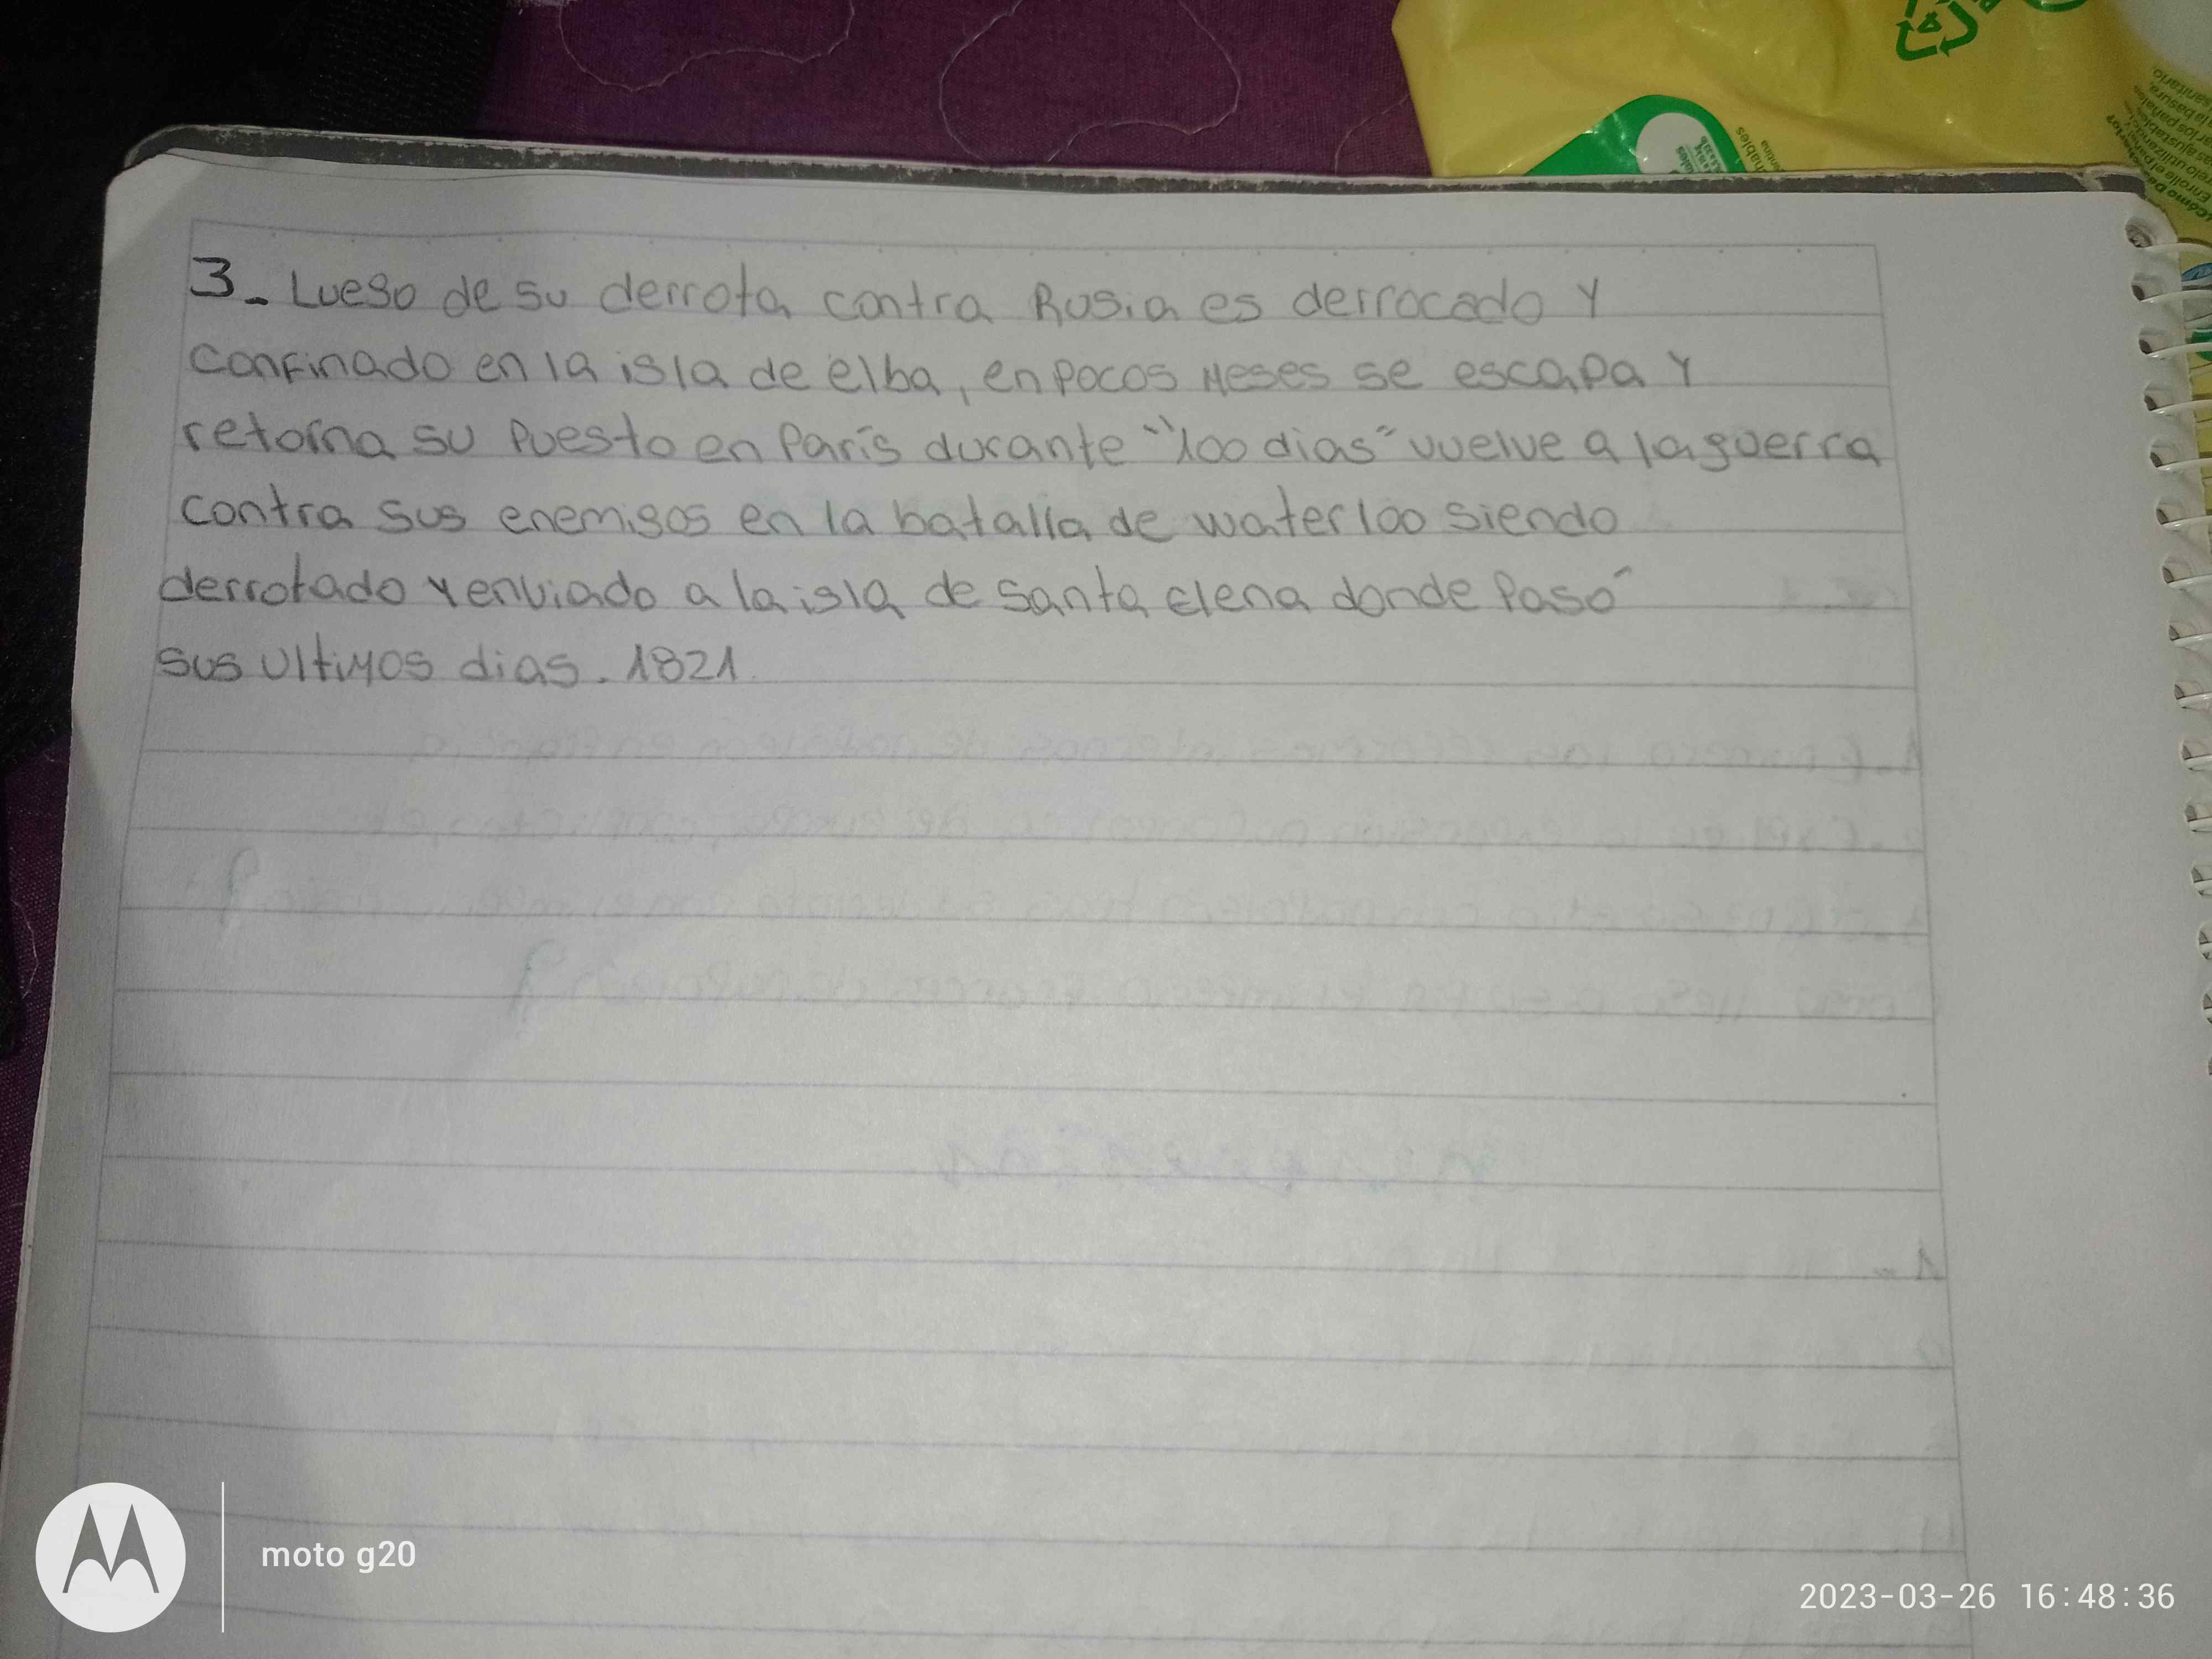 3- Luego de su derrota contra Rusia es derrocado y
confinado en la isla de elba, en pocos meses se escapa y
retorna su puesto en París durante "100 dias" vuelve a la guerra
contra sus enemigos en la batalla de waterloo siendo
derrotado y enviado a la isla de Santa elena donde Pasó
sus ultimos dias. 1821.
moto g20
2023-03-26 16:48:36